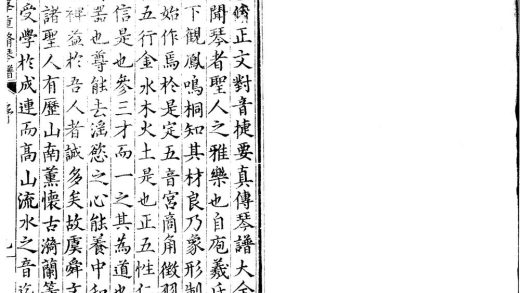 修正文對音捷要真傳琴譜大全
聞琴者聖人之雅樂也自庖羲氏
下觀鳳鳴桐知其材良乃象形制
始作焉於是定五音宮商角徵羽
五行金水木火土是也正五性仁
信是也參三才而一之其為道也
器也尊能去淫慾之心能養中和
裨益於吾人者誠多矣故虞舜
諸聖人有歷山南薰懷古漪蘭等
受學於成連而高山流水之音
重脩琴譜